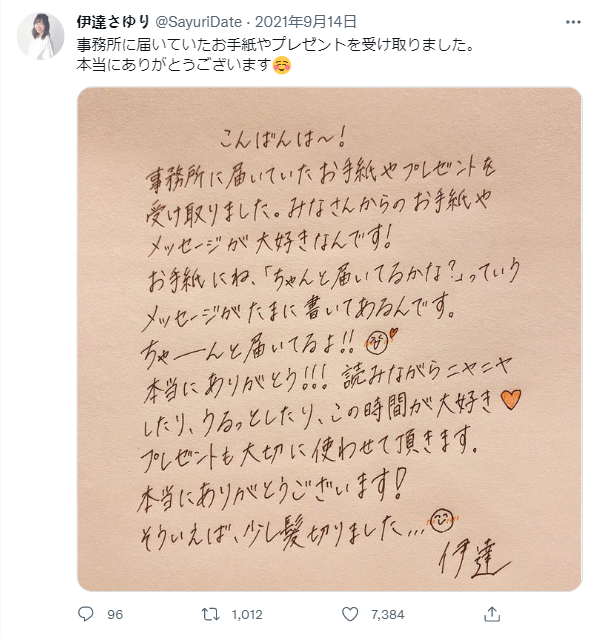 伊達さゆり @SayuriDate · 2021年9月14日
事務所に届いていたお手紙やプレゼントを受け取りました。
本当にありがとうございます☺️
こんばんは〜!
事務所に届いていたお手紙やプレゼントを
受け取りました。みなさんからのお手紙や
メッセージが大好きなんです!
お手紙にね、「ちゃんと届いてるかな?」っていう
メッセージがたまに書いてあるんです。
ちゃーーんと届いてるよ!!
本当にありがとう!!! 読みながらニヤニヤ
したり、うるっとしたり、この時間が大好き🧡
プレゼントも大切に使わせて頂きます。
本当にありがとうございます!
そういえば、少し髪切りました...
伊達
96 1,012 7,384